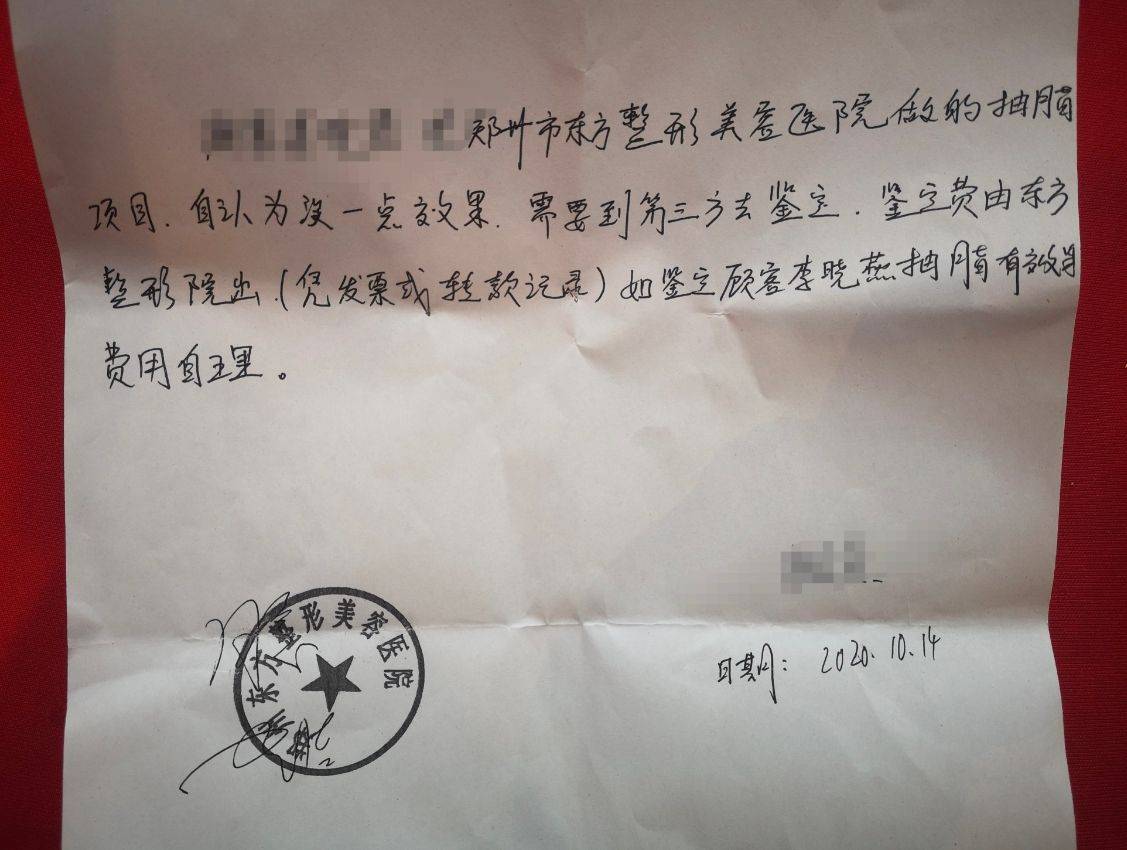 郑州市东方整形美容医院做的抽脂
项目.自认为没一点效果.需要到第三方去鉴定.鉴定费由东方
整形院出(凭发票或转款记录)如鉴定顾客李晓燕抽脂有效果
费用自理。
东方整形美容医院
日期: 2020.10.14